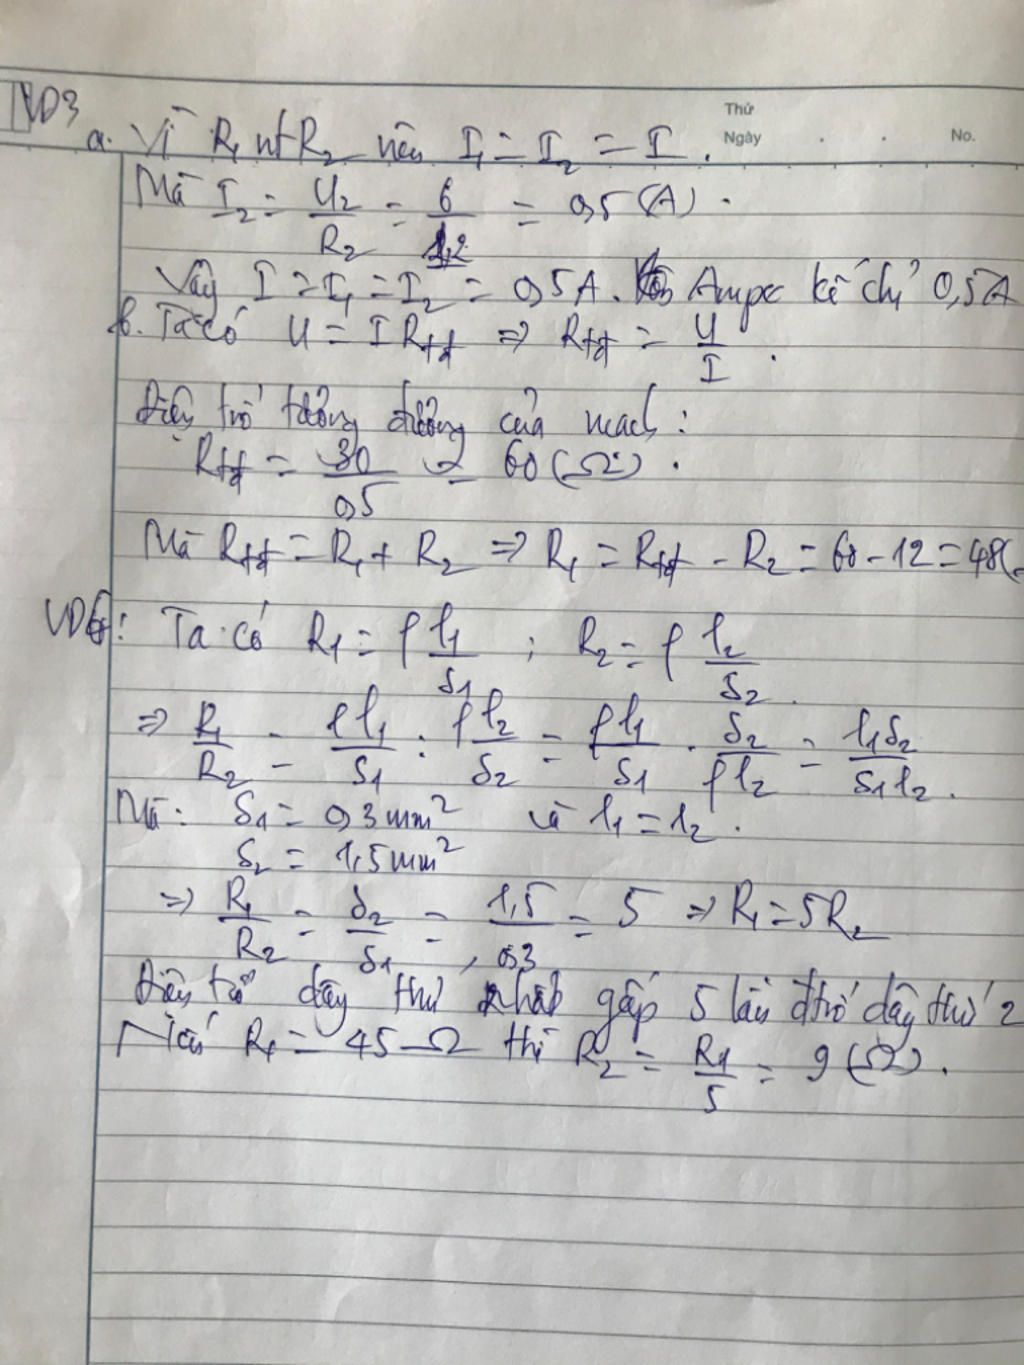 VD3
Thứ
Ngày . . No.
a. Vì R₁ nt R₂ nên I₁ = I₂ = I.
Mà I₂ = U₂/R₂ = 6/12 = 0,5 (A).
Vậy I = I₁ = I₂ = 0,5A. Ampe kế chỉ 0,5A
b. Ta có U = I Rtđ => Rtđ = U/I.
Điện trở tương đương của mạch:
Rtđ = 30/0,5 = 60 (Ω).
Mà Rtđ = R₁ + R₂ => R₁ = Rtđ - R₂ = 60 - 12 = 48(
VD6: Ta có R₁ = ρ l₁/S₁ ; R₂ = ρ l₂/S₂.
=> R₁/R₂ = ρl₁/S₁ : ρl₂/S₂ = ρl₁/S₁ . S₂/ρl₂ = l₁S₂/S₁l₂.
Mà: S₁ = 0,3mm² và l₁ = l₂.
S₂ = 1,5mm²
=> R₁/R₂ = S₂/S₁ = 1,5/0,3 = 5 => R₁ = 5R₂
Điện trở dây thứ nhất gấp 5 lần đtrở dây thứ 2
Nếu R₁ = 45Ω thì R₂ = R₁/5 = 9 (Ω).